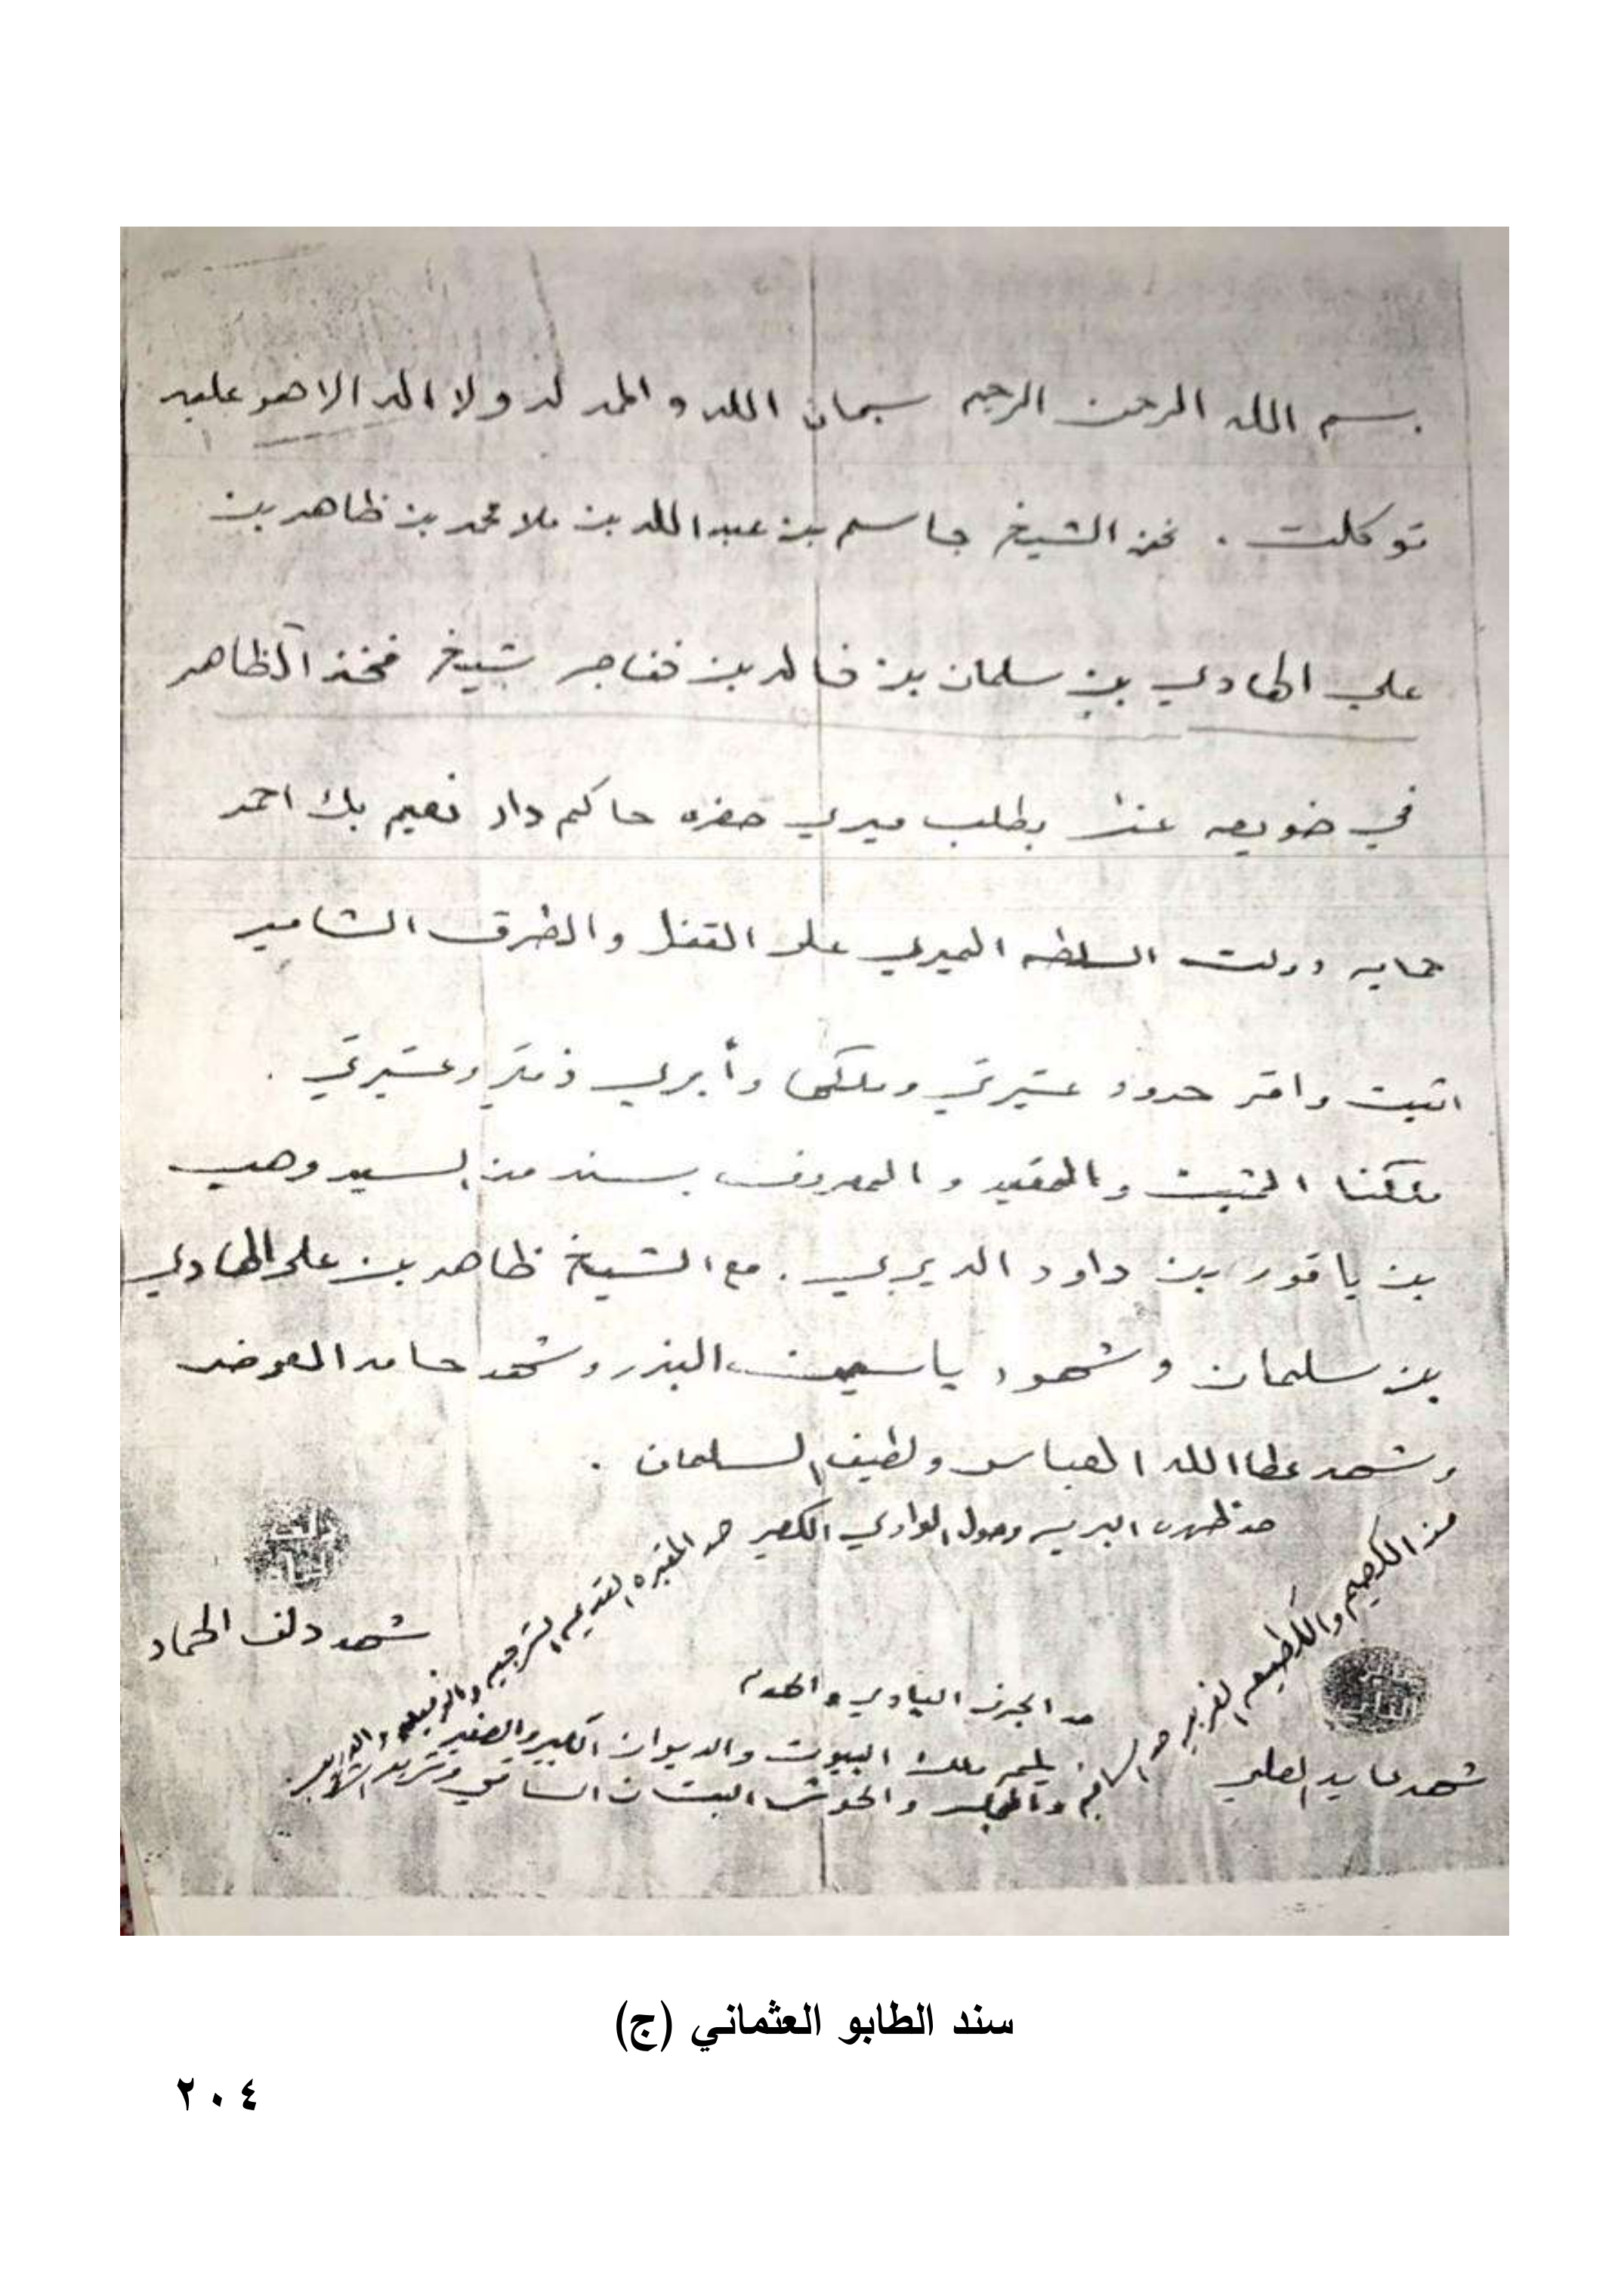 بسم الله الرحمن الرحيم سبحان الله والحمد له ولا اله الا هو عليه
توكلت . نحن الشيخ جاسم بن عبد الله بن ملا محمد بن ظاهر بن
علي الهادي بن سلمان بن خالد بن خناجر شيخ فخذ آلظاهر
في ضويعه عنه بطلب ميري حضره حاكم دار نعيم بك احمد
حمايه دولت السلطه الميري على القفل والطرق الشاميه
اثبت واقر حدود عشيرتي وملكها وأبري ذمتي وعشيرتي .
ملكنا المثبت والمقيد والمعروف بسند من السيد وهب
بن ياقور بن داود الديربي . مع الشيخ ظاهر بن علي الهادي
بن سلمان وشهود ياسين البندر وشهد حامد العوض
وشهد عطا الله العباس ولطيف السلمان .
حد ظهره البريه وحول الوادي الكصير
حد المقبره القديمه الشرجيه
من الكصيم والكطيعه الغربيه
شهد دلف الحماد
حد الجرف البيادي والهدم
يلحم ملك البيوت والديوان الكبير والصغير
والحوش البستان الساقي
شهد عايد العلي
سند الطابو العثماني (ج)
٢٠٤